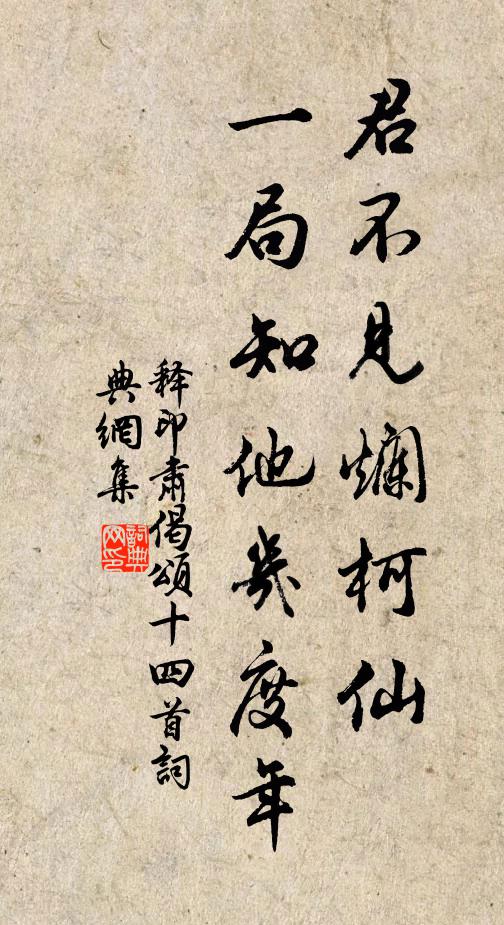 君不見爛柯仙
一局知他幾度年
释印肅偈頌十四首詞
典網集
詞典网印